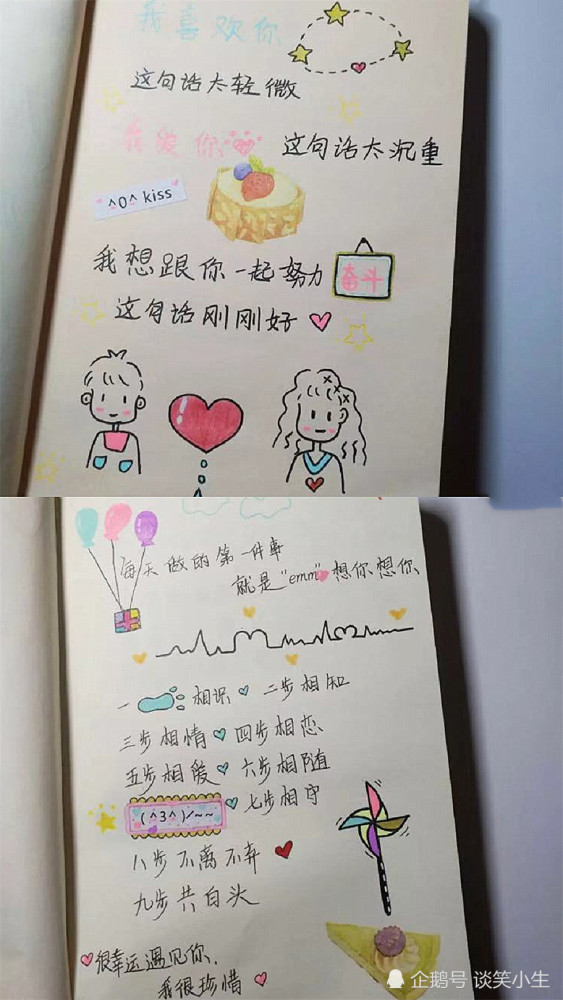 我喜欢你
这句话太轻微
我爱你 这句话太沉重
^O^ kiss
我想跟你一起努力 奋斗
这句话刚刚好
每天做的第一件事
就是"emm"想你想你
一 相识 二步相知
三步相情 四步相恋
五步相爱 六步相随
(^3^)/~~ 七步相守
八步不离不弃
九步共白头
很幸运遇见你,
我很珍惜
企鹅号 谈笑小生